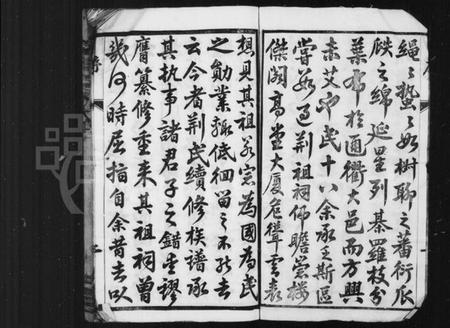 繩之蟄之如樹聊之蕃衍瓜
瓞之綿延星列碁羅枝分
葉布於通衢大邑而方興
未艾也民十八余承乏斯區
嘗數過荆祖祠仰瞻崇樓
傑閣高堂大厦危聳雲表
想見其祖若宗為國為民
之勛業輒低徊留之不能去
云今者荆氏續修族譜承
其執事諸君子之錯委謬
膺纂修重来其祖祠曾
幾何時屈指自余昔去以
序